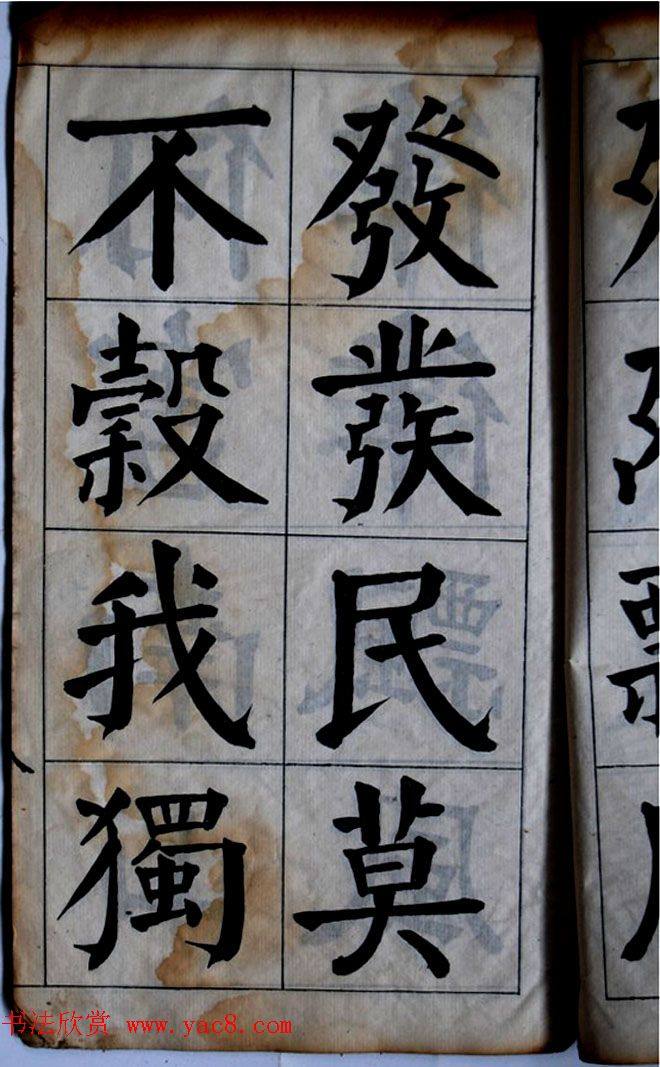 發發民莫
不穀我獨
书法欣赏 www.yac8.com